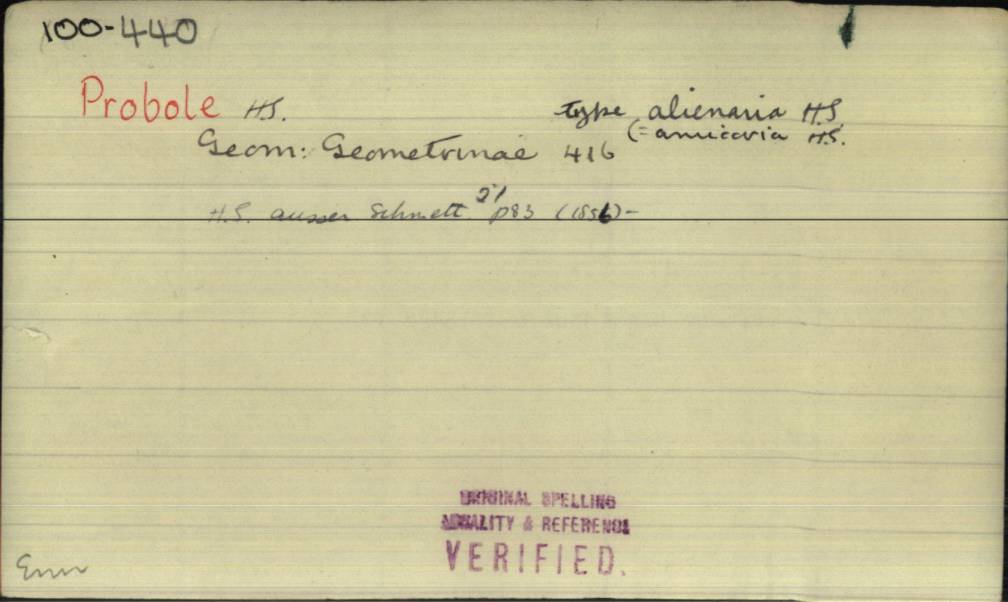 100-440
Probole H.S. type alienaria H.S.
(= amicaria H.S.
Geom: Geometrinae 416
H.S. ausser Schmett. 21 p83 (1856)-
ORIGINAL SPELLING
& REFERENCE
VERIFIED.
Enn